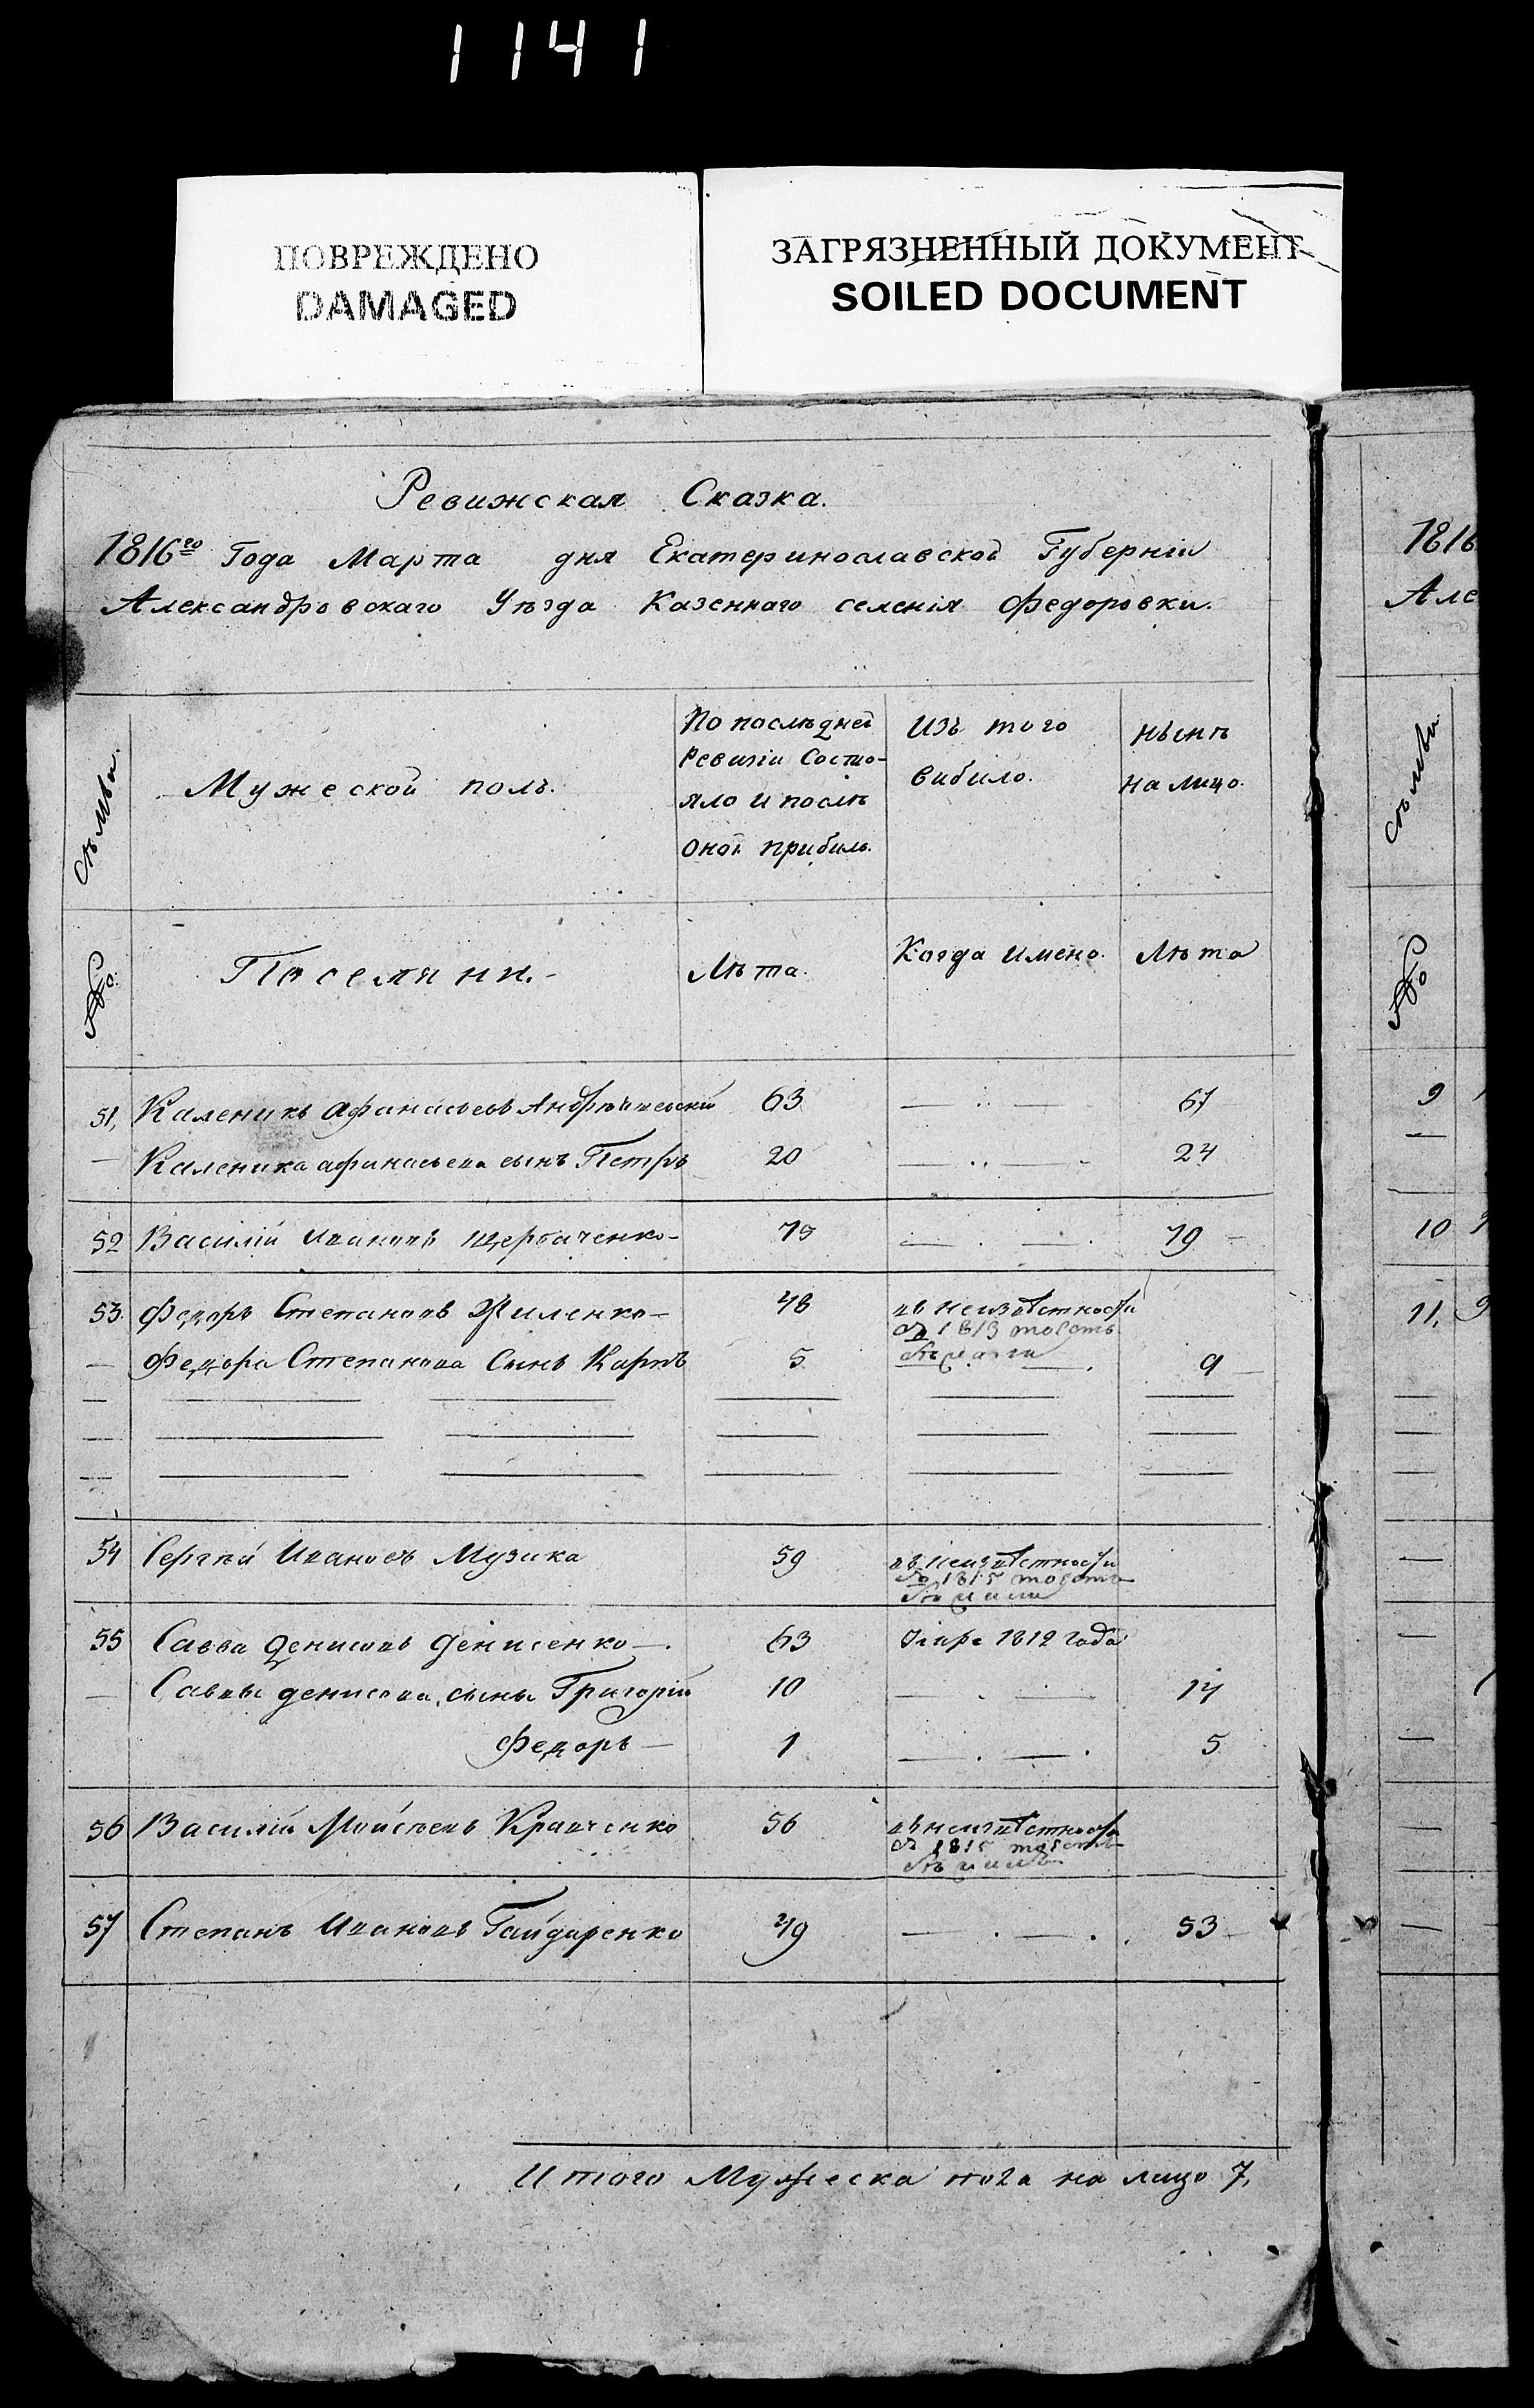 1141
ПОВРЕЖДЕНО
DAMAGED
ЗАГРЯЗНЕННЫЙ ДОКУМЕНТ
SOILED DOCUMENT
Ревижская Сказка.
1816го Года Марта дня Екатеринославской Губерніи
Александровскаго Уѣзда Казеннаго селенія Федоровки.
Съмьи.
Мужеской полъ.
По послѣдней
Ревизіи Состо-
яло и послѣ
оной прибыль.
Изъ того
вибило.
Нынѣ
на лицо.
№
Поселяни.
Лѣта.
Когда имено.
Лѣта
51, Каленикъ Афанасьевъ 63 67
Каленика афанасьева сынъ Петръ 20 24
52 Василій Ивановъ Щербаченко 75 79
53 Федоръ Степановъ Жиленко 48 въ неизвѣстности
съ 1813
Федора Степанова Сынъ Карпъ 5 9
54 Сергѣй Ивановъ Музика 59 въ неизвѣстности
1815
55 Савва Денисовъ Денисенко 63 Умре 1812 года
Саввы денисова сыны Григорій 10 14
Федоръ 1 5
56 Василій Мойсѣевъ Кравченко 56 въ неизвѣстности
съ 1815
57 Степанъ Ивановъ Гайдаренко 49 53
Итого Мужеска пола на лицо 7,
1816
Але
Съмьи
№
9
10
11,